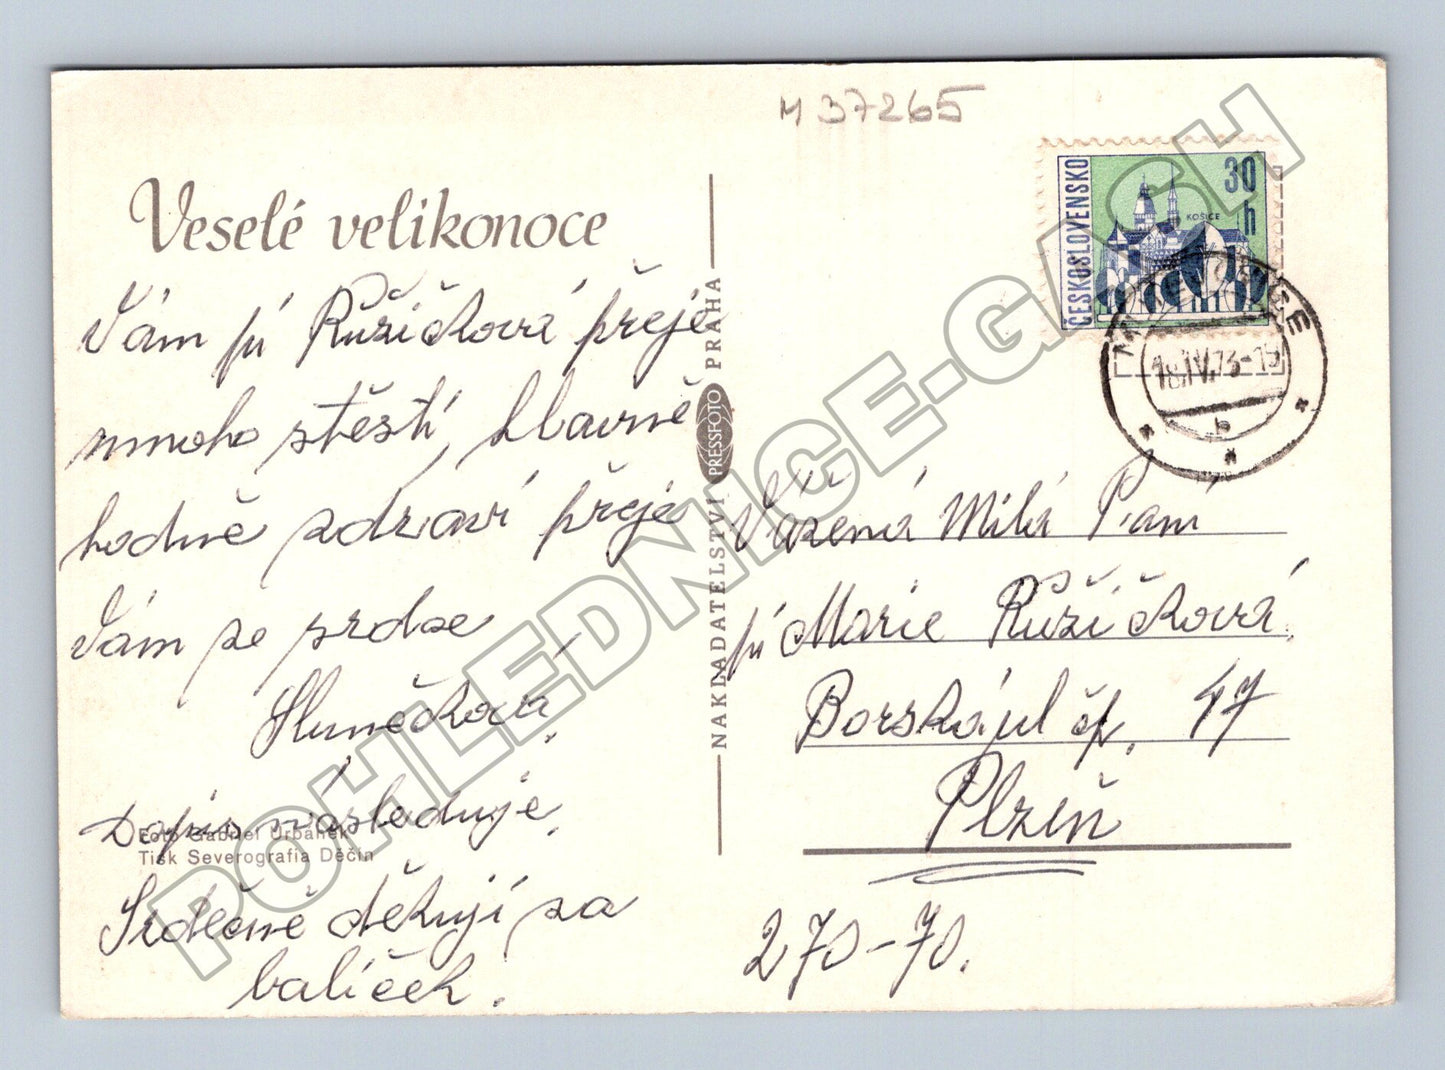 M 37265
Veselé velikonoce
Vám pí Růžičková přeje
mnoho štěstí, hlavně
hodně zdraví přeje
Vám ze srdce
Slunéčková.
Dopis následuje.
Foto Gabriel Urbánek
Tisk Severografia Děčín
Srdečně děkuji za
balíček.
NAKLADATELSTVÍ PRESSFOTO PRAHA
ČESKOSLOVENSKO
30 h
KOŠICE
18.IV.73-15
b
Vážená Milá Paní
pí Marie Růžičková
Borská ul čp. 47
Plzeň
270-70.
POHLEDNICE-GASCH